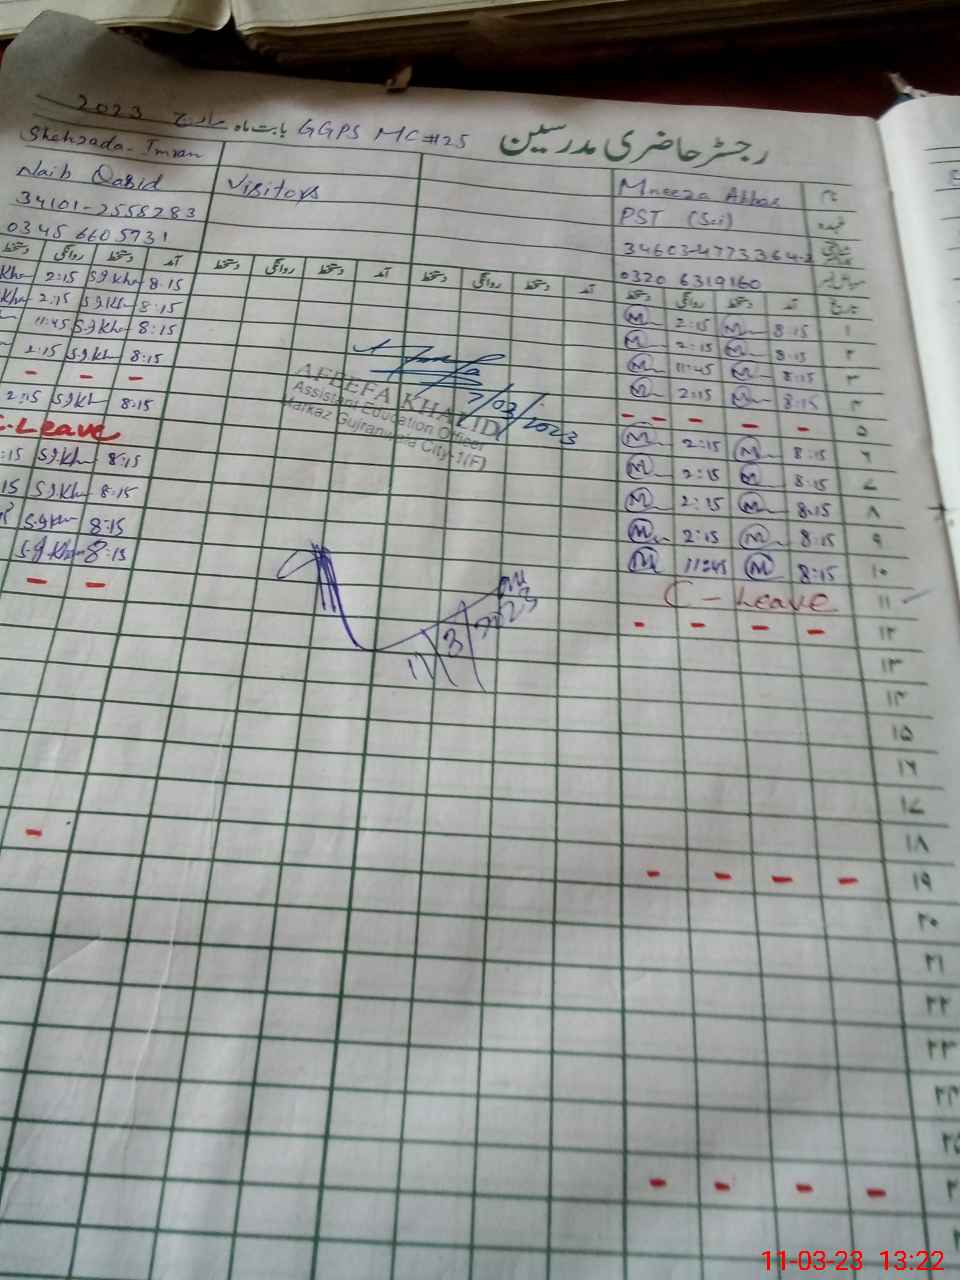 رجسٹر حاضری مدرسین GGPS MC#125 بابت ماہ مارچ 2023
Shehzada Imran Mneeza Abbas نام
Naib Qasid Visitors PST (Sci) عہدہ
34101-2558283 34603-4773364-2 شناختی کارڈ
0345 6605731 0320 6319160 موبائل نمبر
دستخط روانگی دستخط آمد دستخط روانگی دستخط آمد دستخط روانگی دستخط آمد دستخط روانگی دستخط آمد تاریخ
Kha 2:15 S.J.Kha 8:15 M 2:15 M 8:15 ۱
2:15 S.J.Kh 8:15 M 2:15 M 8:15 ۲
11:45 S.J.Kh 8:15 M 11:45 M 8:15 ۳
2:15 S.J.Kh 8:15 M 2:15 M 8:15 ۴
- - - - - - - ۵
2:15 S.J.Kh 8:15 M 2:15 M 8:15 ۶
C-Leave M 2:15 M 8:15 ۷
:15 S.J.Kh 8:15 M 2:15 M 8:15 ۸
15 S.J.Kh 8:15 M 2:15 M 8:15 ۹
S.J.Kh 8:15 M 11:45 M 8:15 ۱۰
S.J.Kha 8:15 C-Leave ۱۱
- - - - - - ۱۲
۱۳
۱۴
۱۵
۱۶
۱۷
۱۸
- - - - - ۱۹
۲۰
۲۱
۲۲
۲۳
۲۴
۲۵
- - - -
7/03/2023
AFEEFA KHALID
Assistant Education Officer
Markaz Gujranwala City-1(F)
11 3
11-03-23 13:22